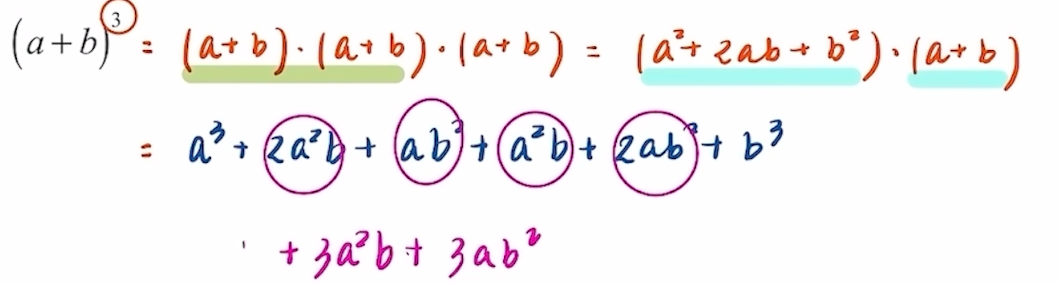 (a+b)³ = (a+b)·(a+b)·(a+b) = (a²+2ab+b²)·(a+b)
= a³ + 2a²b + ab² + a²b + 2ab² + b³
+ 3a²b + 3ab²